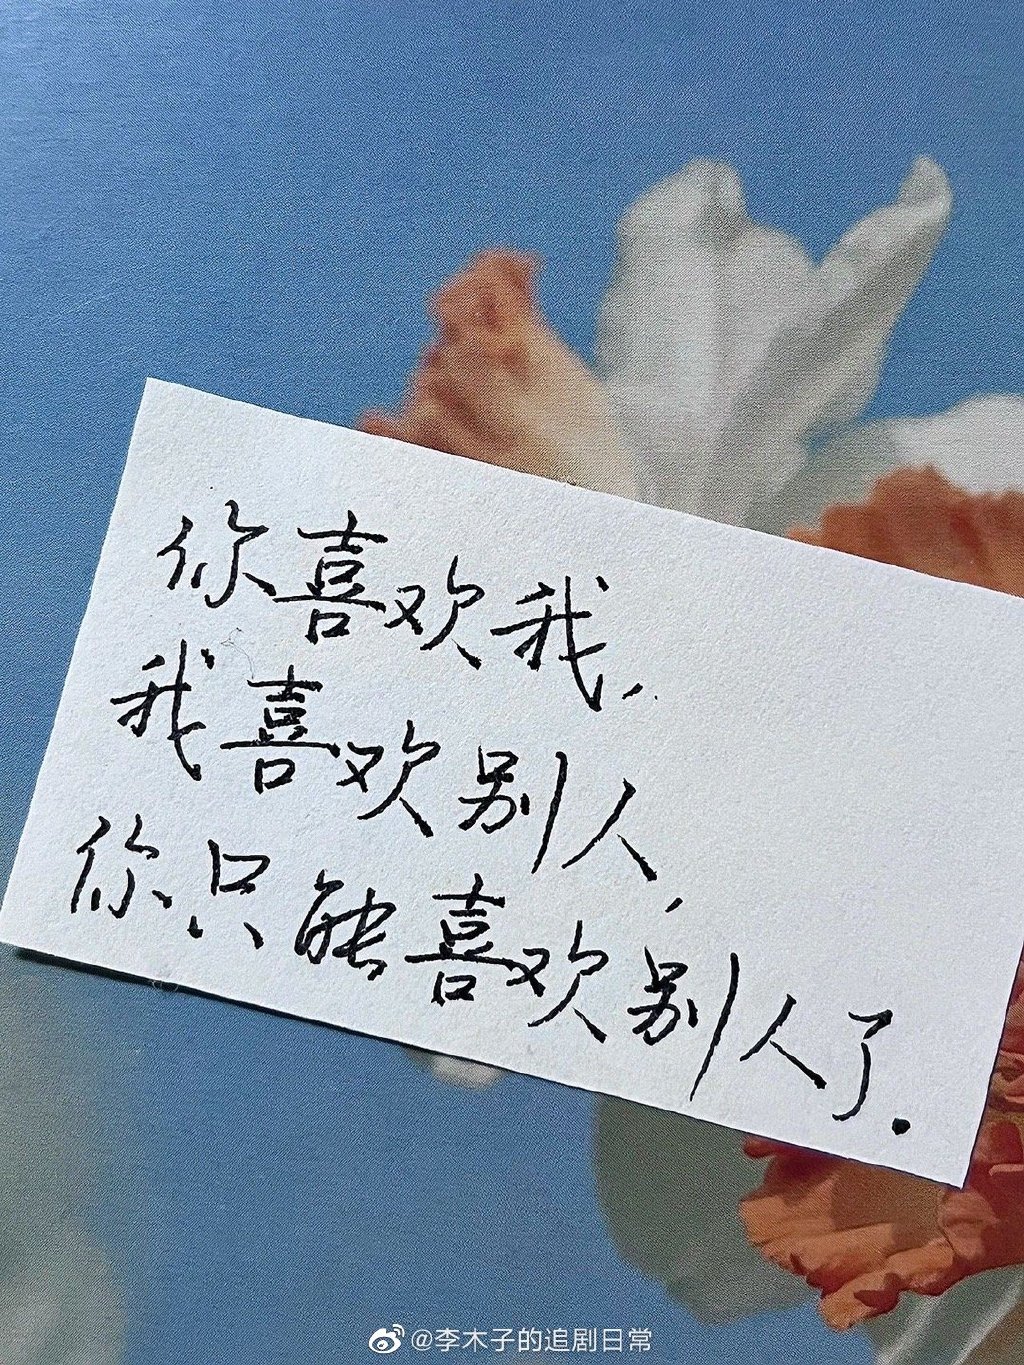 你喜欢我,
我喜欢别人,
你只能喜欢别人了.
@李木子的追剧日常